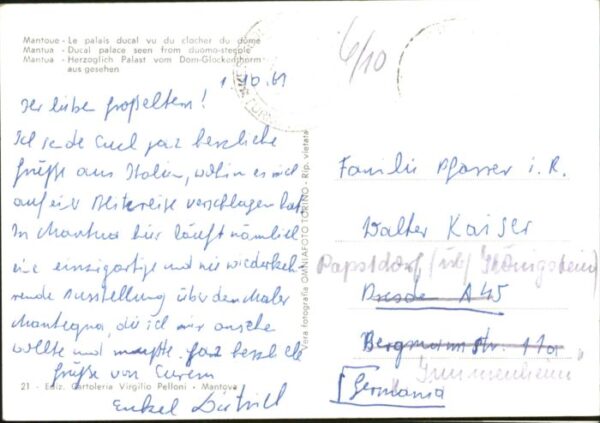 Mantoue - Le palais ducal vu du clocher du dôme
Mantua - Ducal palace seen from duomo-steeple
Mantua - Herzoglich Palast vom Dom-Glockenthurm
aus gesehen
1.10.61
6/10
Ihr lieben Großeltern!
Ich sende Euch ganz herzliche
Grüße aus Italien, wohin es mich
auf einer Blitzreise verschlagen hat.
In Mantua hier läuft nämlich
eine einzigartige und nie wiederkeh
rende Ausstellung über den Maler
Mantegna, die ich mir ansehn
wollte und mußte. Ganz herzliche
Grüße von Eurem
Enkel Dietrich
21 - Ediz. Cartoleria Virgilio Pelloni - Mantova
Vera fotografia OMNIAFOTO TORINO - Rip. vietata
Familie Pfarrer i. R.
Walter Kaiser
Papstdorf (üb/ Königstein)
Dresden A 45
Bergmannstr. 11a
Germania